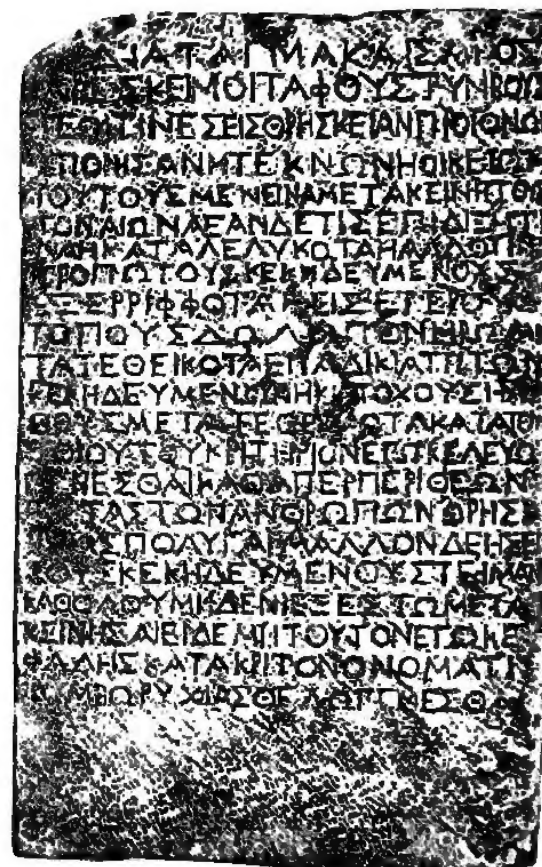 ΔΙΑΤΑΓΜΑ ΚΑΙΣΑΡΟΣ
ΑΡΕΣΚΕΙ ΜΟΙ ΤΑΦΟΥΣ ΤΥΝΒΟΥΣ
ΤΕ ΟΙΤΙΝΕΣ ΕΙΣ ΘΡΗΣΚΕΙΑΝ ΠΡΟΓΟΝΩΝ
ΕΠΟΙΗΣΑΝ Η ΤΕΚΝΩΝ Η ΟΙΚΕΙΩΝ
ΤΟΥΤΟΥΣ ΜΕΝΕΙΝ ΑΜΕΤΑΚΕΙΝΗΤΟΥΣ
ΤΟΝ ΑΙΩΝΑ ΕΑΝ ΔΕ ΤΙΣ ΕΠΙΔΙΞΗ ΤΙ
ΝΑ Η ΚΑΤΑΛΕΛΥΚΟΤΑ Η ΑΛΛΩ ΤΙΝΙ
ΤΡΟΠΩ ΤΟΥΣ ΚΕΚΗΔΕΥΜΕΝΟΥΣ
ΕΞΕΡΡΙΦΦΟΤΑ Η ΕΙΣ ΕΤΕΡΟΥΣ
ΤΟΠΟΥΣ ΔΩΛΩ ΠΟΝΗΡΩ ΜΕ
ΤΑΤΕΘΕΙΚΟΤΑ ΕΠ ΑΔΙΚΙΑ ΤΗ ΤΩΝ
ΚΕΚΗΔΕΥΜΕΝΩΝ Η ΚΑΤΟΧΟΥΣ Η ΛΙ
ΘΟΥΣ ΜΕΤΑΤΕΘΕΙΚΟΤΑ ΚΑΤΑ ΤΟΥ
ΤΟΙΟΥΤΟΥ ΚΡΙΤΗΡΙΟΝ ΕΓΩ ΚΕΛΕΥΩ
ΓΕΝΕΣΘΑΙ ΚΑΘΑΠΕΡ ΠΕΡΙ ΘΕΩΝ
ΕΙΣ ΤΑΣ ΤΩΝ ΑΝΘΡΩΠΩΝ ΘΡΗΣ
ΚΙΑΣ ΠΟΛΥ ΓΑΡ ΜΑΛΛΟΝ ΔΕΗΣΕΙ
ΤΟΥΣ ΚΕΚΗΔΕΥΜΕΝΟΥΣ ΤΕΙΜΑΝ
ΚΑΘΟΛΟΥ ΜΗΔΕΝΙ ΕΞΕΣΤΩ ΜΕΤΑ
ΚΕΙΝΗΣΑΙ ΕΙ ΔΕ ΜΗ ΤΟΥΤΟΝ ΕΓΩ ΚΕ
ΦΑΛΗΣ ΚΑΤΑΚΡΙΤΟΝ ΟΝΟΜΑΤΙ
ΤΥΜΒΩΡΥΧΙΑΣ ΘΕΛΩ ΓΕΝΕΣΘΑΙ